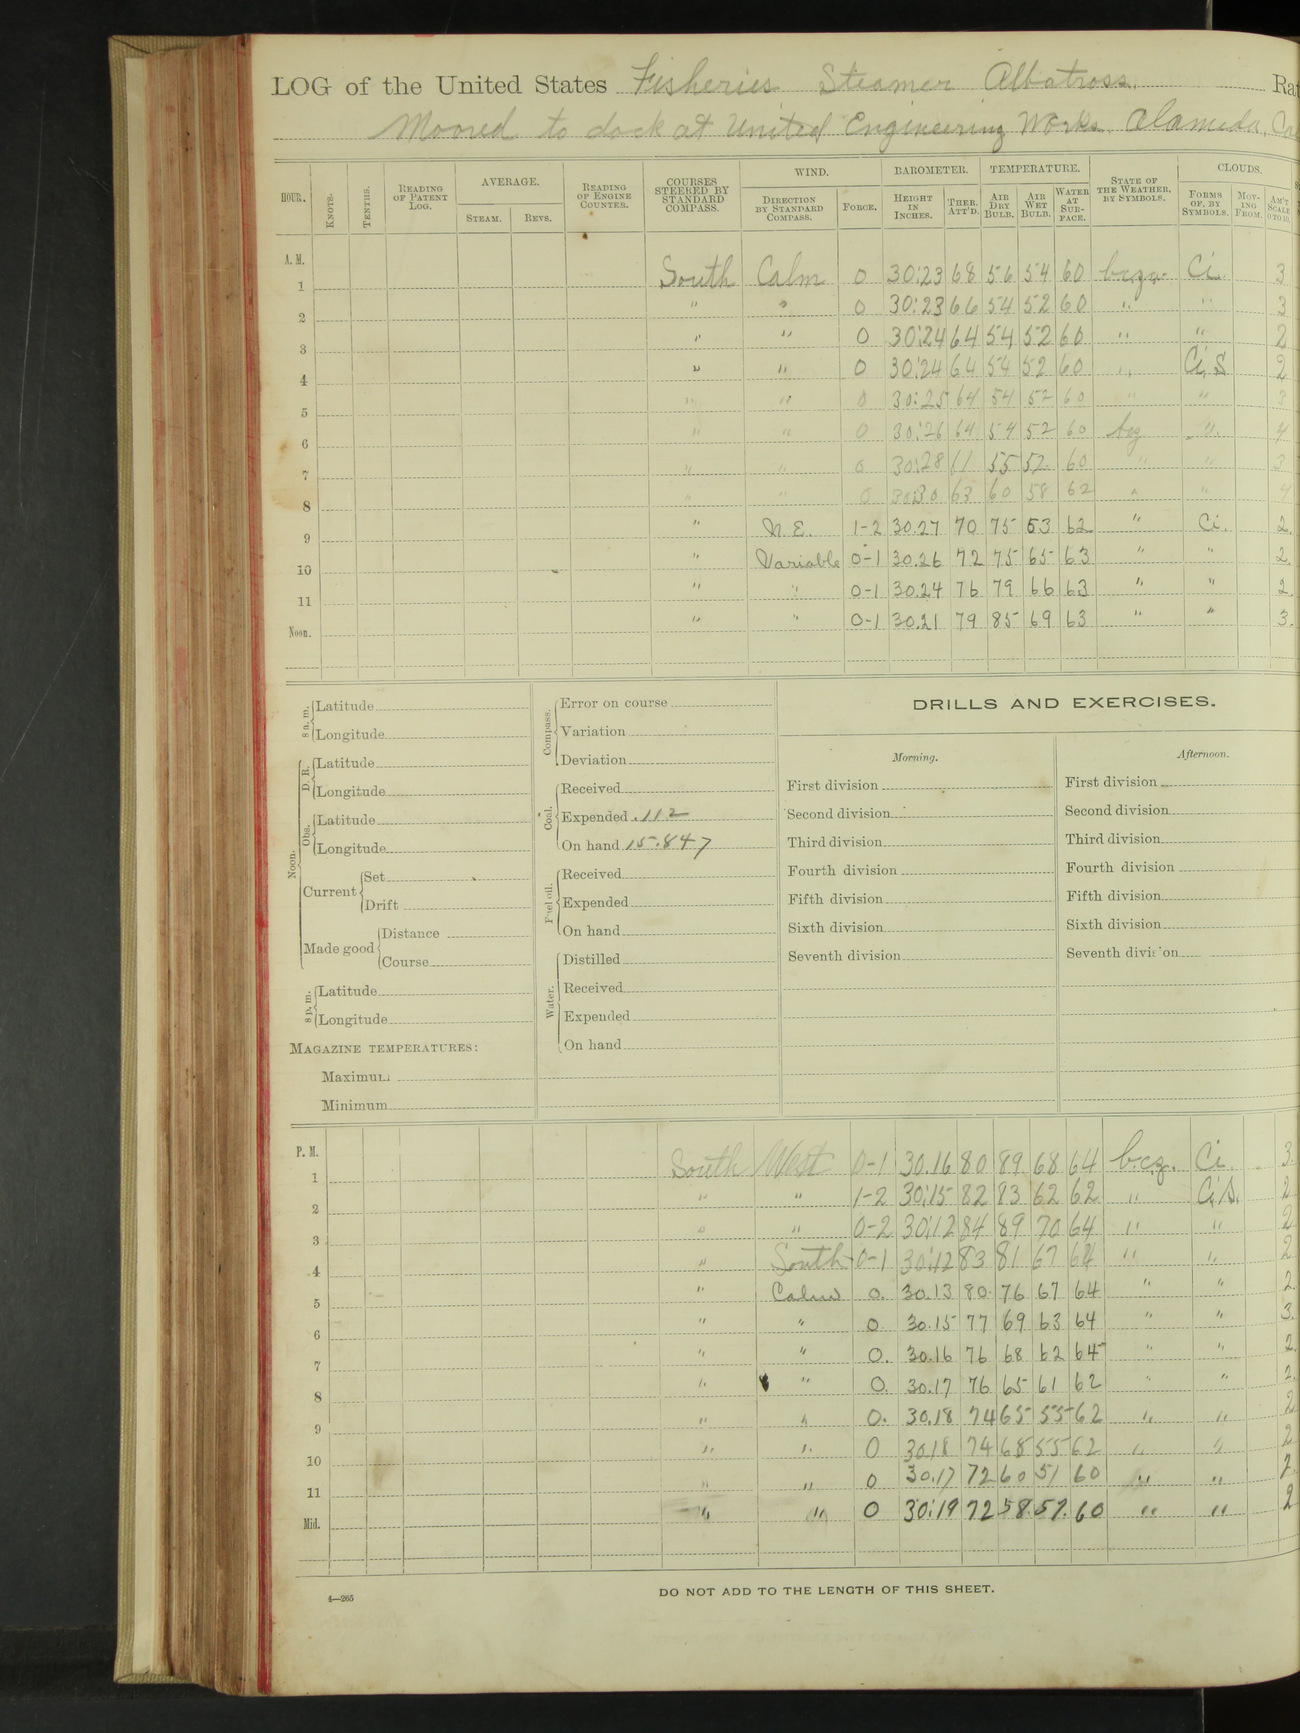 LOG of the United States Fisheries Steamer Albatross, Rat
Moored to dock at United Engineering Works, Alameda, Ca
HOUR. KNOTS. TENTHS. READING OF PATENT LOG. AVERAGE. STEAM. REVS. READING OF ENGINE COUNTER. COURSES STEERED BY STANDARD COMPASS. WIND. DIRECTION BY STANDARD COMPASS. FORCE. BAROMETER. HEIGHT IN INCHES. THER. ATT'D. TEMPERATURE. AIR DRY BULB. AIR WET BULB. WATER AT SURFACE. STATE OF THE WEATHER, BY SYMBOLS. CLOUDS. FORMS OF, BY SYMBOLS. MOVING FROM. AM'T SCALE 0 TO 10.
A. M.
1 South Calm 0 30.23 68 56 54 60 b.c.z. Ci. 3
2 " " 0 30.23 66 54 52 60 " " 3
3 " " 0 30.24 64 54 52 60 " " 2
4 " " 0 30.24 64 54 52 60 " Ci, S 2
5 " " 0 30.25 64 54 52 60 " " 3
6 " " 0 30.26 64 54 52 60 bcz " 4
7 " " 0 30.28 61 55 52 60 " " 3
8 " " 0 30.30 63 60 58 62 " " 4
9 " N.E. 1-2 30.27 70 75 63 62 " Ci. 2.
10 " Variable 0-1 30.26 72 75 65 63 " " 2.
11 " " 0-1 30.24 76 79 66 63 " " 2.
Noon. " " 0-1 30.21 79 85 69 63 " " 3.
8 a. m. Latitude
Longitude
Noon. D. R. Latitude
Longitude
Obs. Latitude
Longitude
Current Set
Drift
Made good Distance
Course
8 p. m. Latitude
Longitude
MAGAZINE TEMPERATURES:
Maximum
Minimum
Compass. Error on course
Variation
Deviation
Coal. Received
Expended .112
On hand 15.847
Fuel oil. Received
Expended
On hand
Water. Distilled
Received
Expended
On hand
DRILLS AND EXERCISES.
Morning.
First division
Second division
Third division
Fourth division
Fifth division
Sixth division
Seventh division
Afternoon.
First division
Second division
Third division
Fourth division
Fifth division
Sixth division
Seventh division
P. M.
1 South West 0-1 30.16 80 89 68 64 b.c.z. Ci. 3.
2 " " 1-2 30.15 82 83 62 62 " Ci, S. 2
3 " " 0-2 30.12 84 89 70 64 " " 2
4 " South 0-1 30.12 83 81 67 64 " " 2
5 " Calm 0. 30.13 80 76 67 64 " " 2.
6 " " 0 30.15 77 69 63 64 " " 3.
7 " " 0. 30.16 76 68 62 64 " " 2.
8 " " 0. 30.17 76 65 61 62 " " 2.
9 " " 0. 30.18 74 65 55 62 " " 2
10 " " 0 30.18 74 68 55 62 " " 2
11 " " 0 30.17 72 60 51 60 " " 2.
Mid. " " 0 30.19 72 58 57 60 " " 2
4—265
DO NOT ADD TO THE LENGTH OF THIS SHEET.